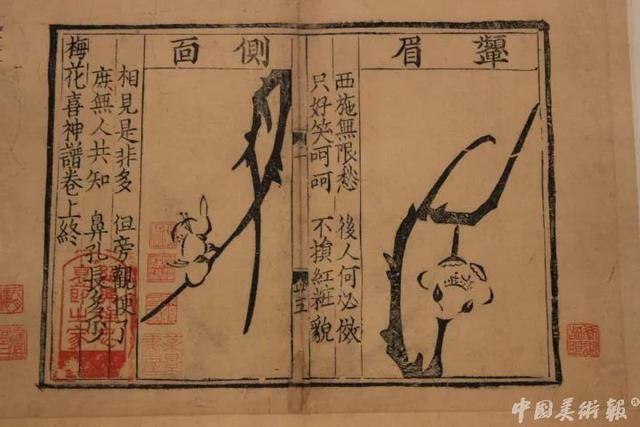 顰眉
西施無限愁 後人何必傚
只好笑呵呵 不損紅粧貌
側面
相見是非多 但旁觀便了
庶無人共知 鼻孔長多少
梅花喜神譜卷上終
中国美術報